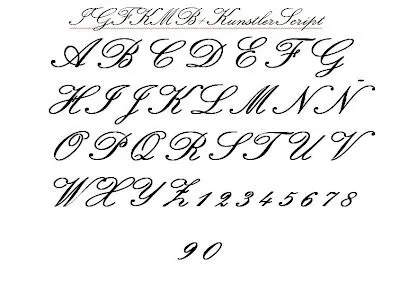 IGFKMB+KunstlerScript
A B C D E F G
H I J K L M N Ñ
O P Q R S T U V
W X Y Z 1 2 3 4 5 6 7 8
9 0